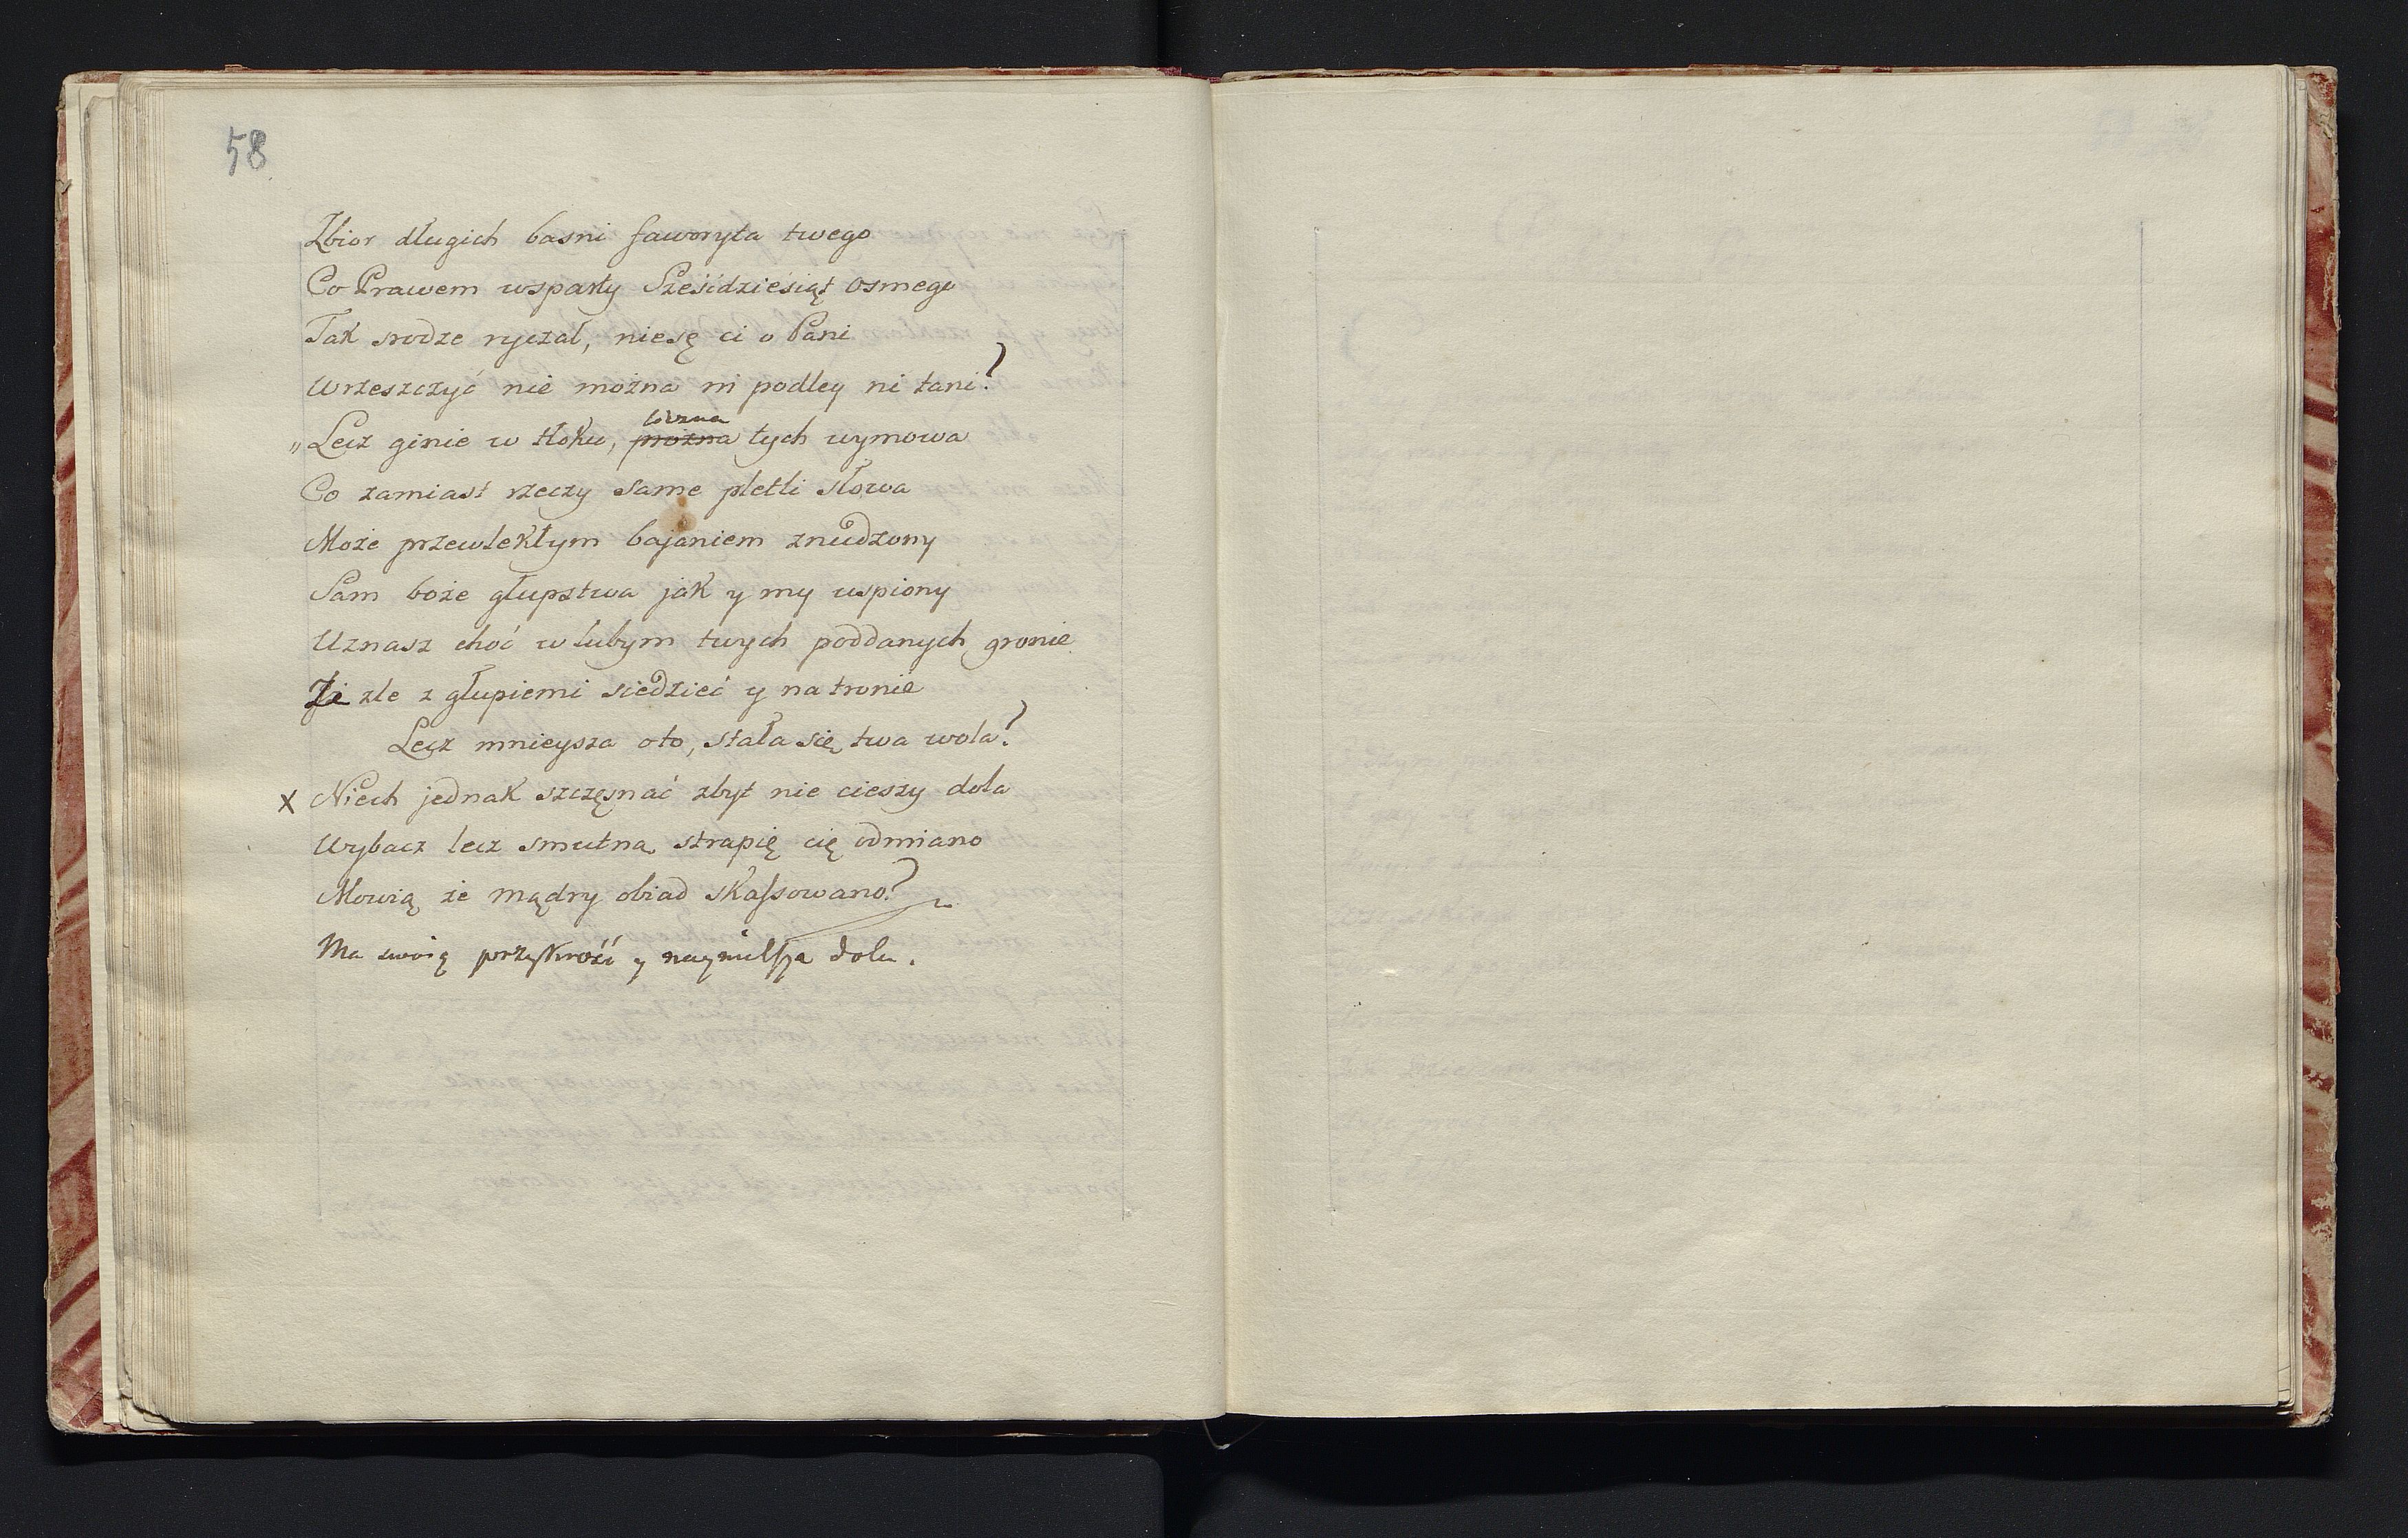 58
Zbior długich basni faworyta twego
Co Prawem wsparty Sześćdziesiąt osmego
Tak srodze ryczał, niesę ci o Pani
Wrzeszczyć nie można ni podley ni taniéy?
„ Lecz ginie w tłoku, prożna tych wymowa
Co zamiast rzeczy same pletli słowa
Może przewlekłym bajaniem znudzony
Sam boże głupstwa jak y my uspiony
Uznasz choć w lubym twych poddanych gronie
Że zle z głupiemi siedzieć y na tronie
Lecz mnieysza oto, stała się twa wola?
x Niech jednak szczęsnać zbyt nie cieszy dola
Wybacz lecz smutną strapię cię odmianą
Mowią że mądry obiad skassowano?
Ma swoią przykrość y naymilsza dola.